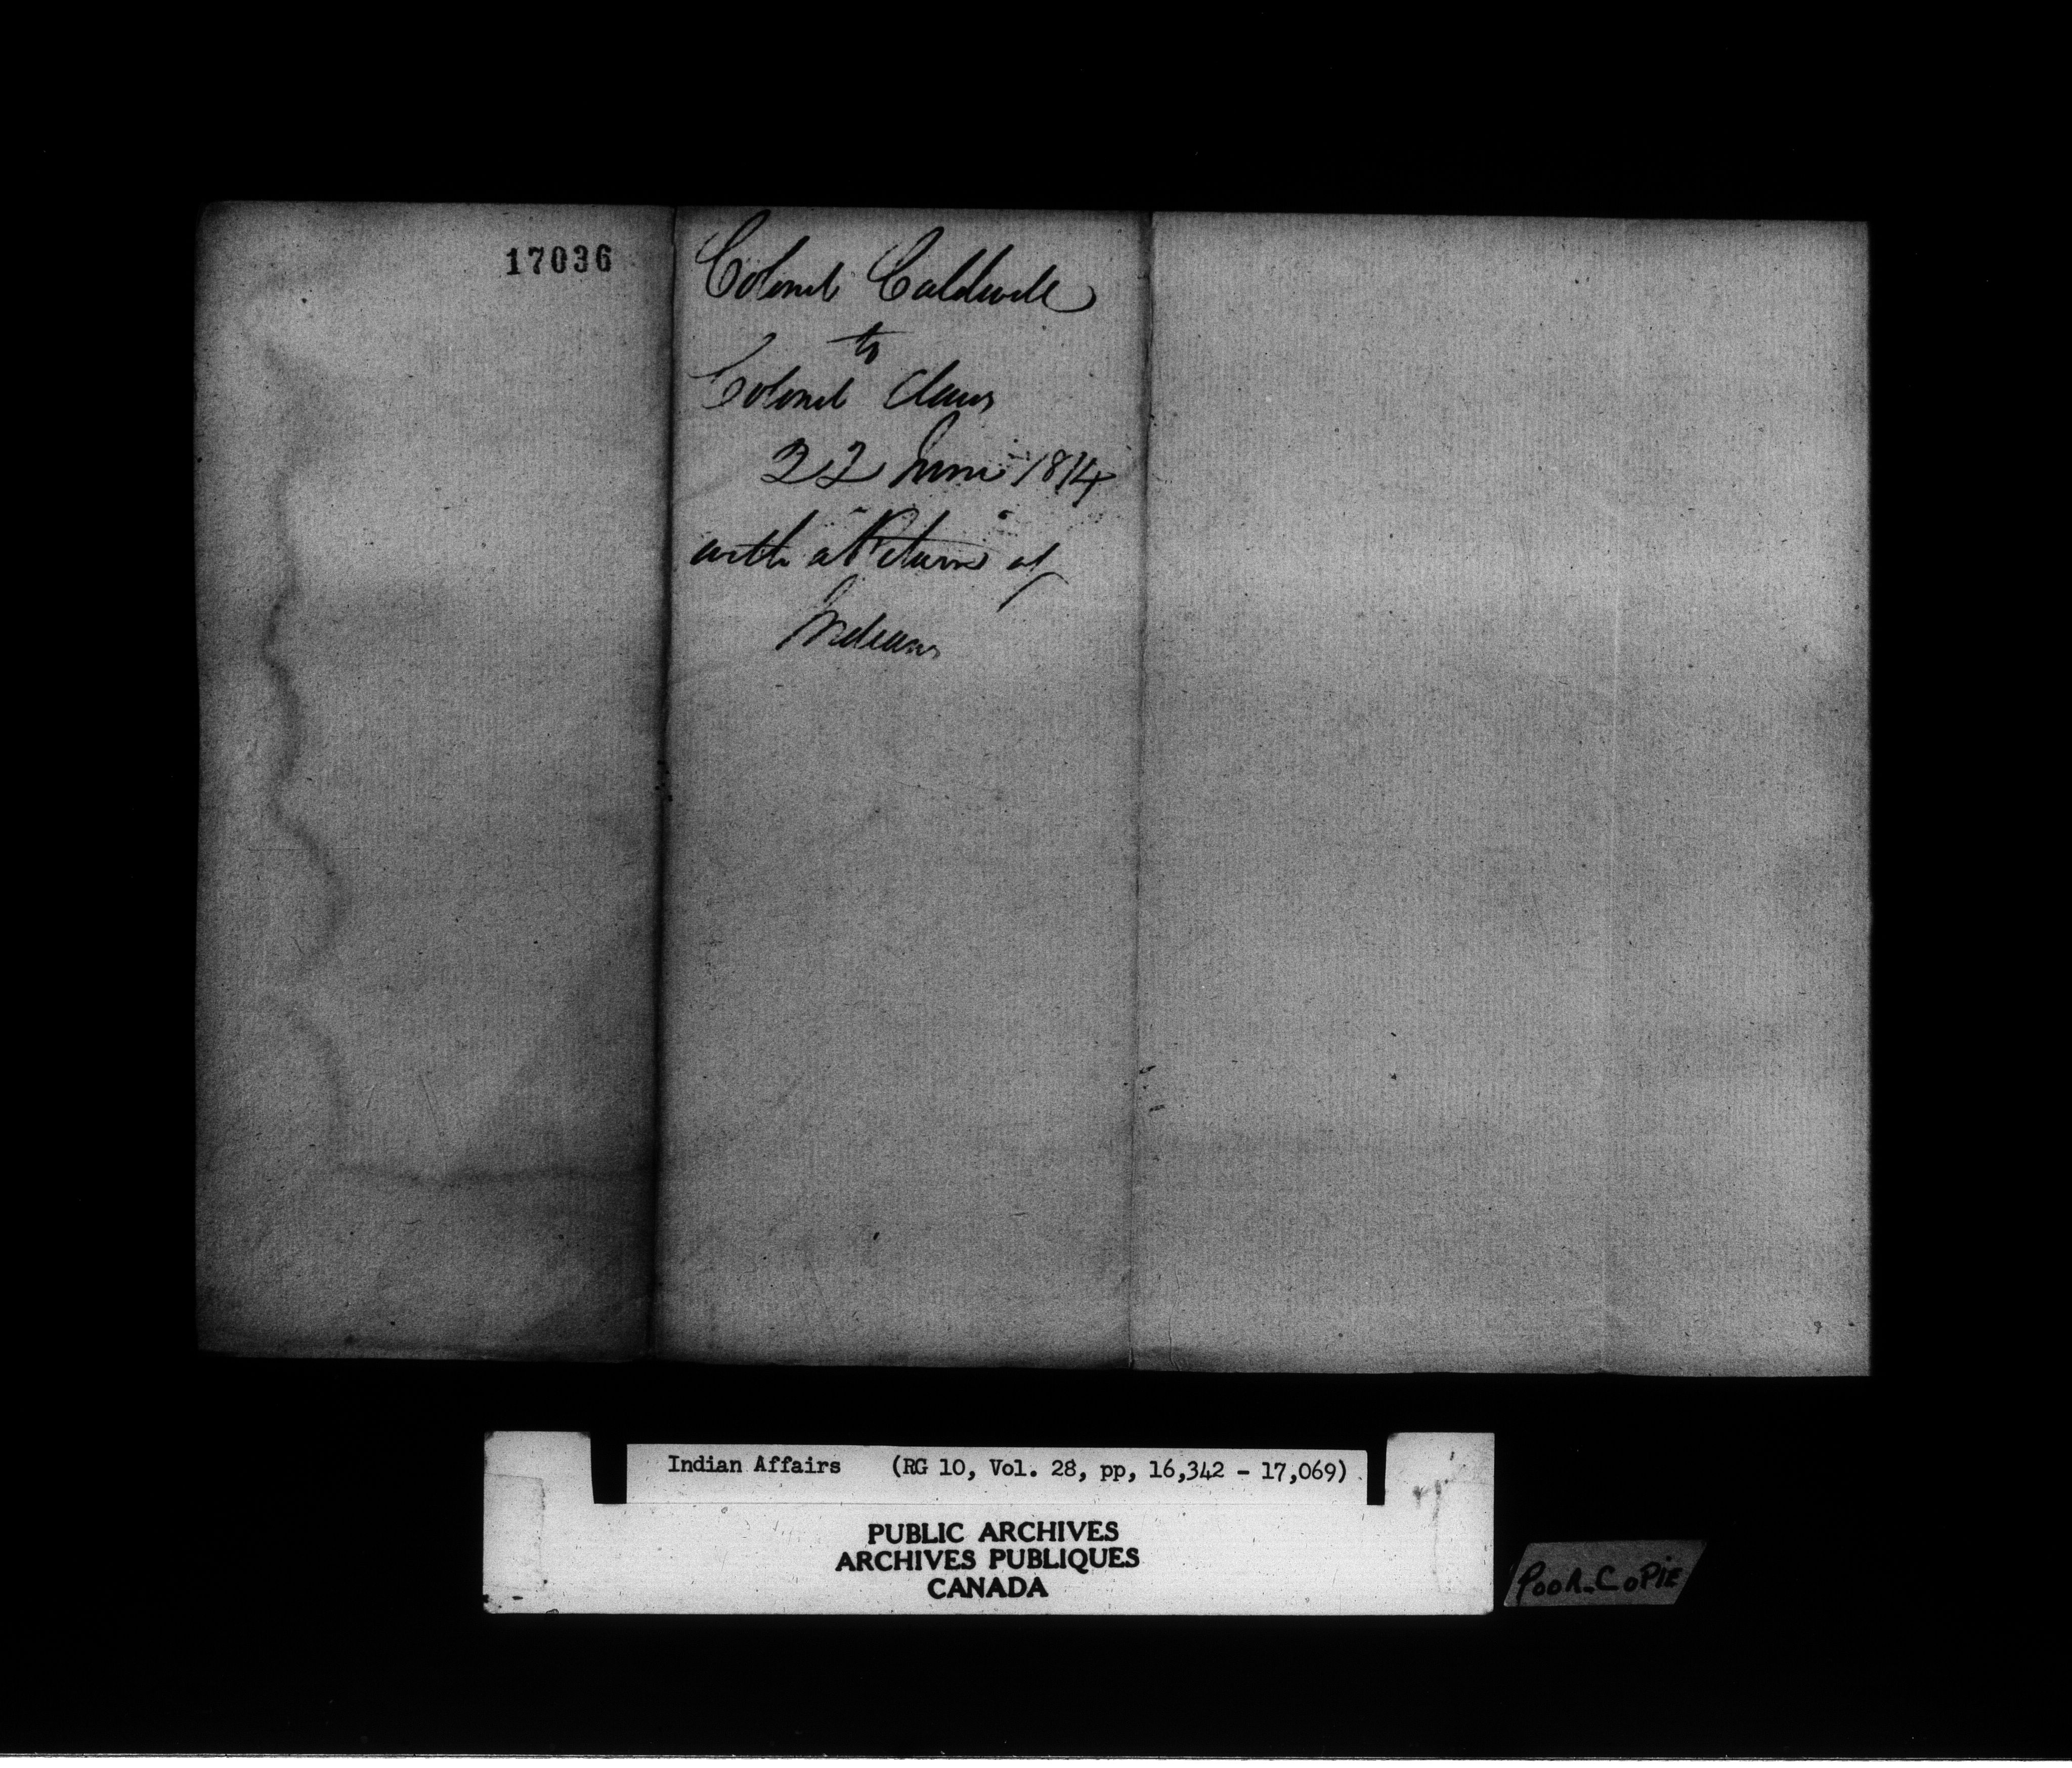 17036
Colonel Caldwell
to
Colonel Claus
22 June 1814
with a "Return" of
Indians
Indian Affairs (RG 10, Vol. 28, pp, 16,342 - 17,069)
PUBLIC ARCHIVES
ARCHIVES PUBLIQUES
CANADA
POOR COPIE